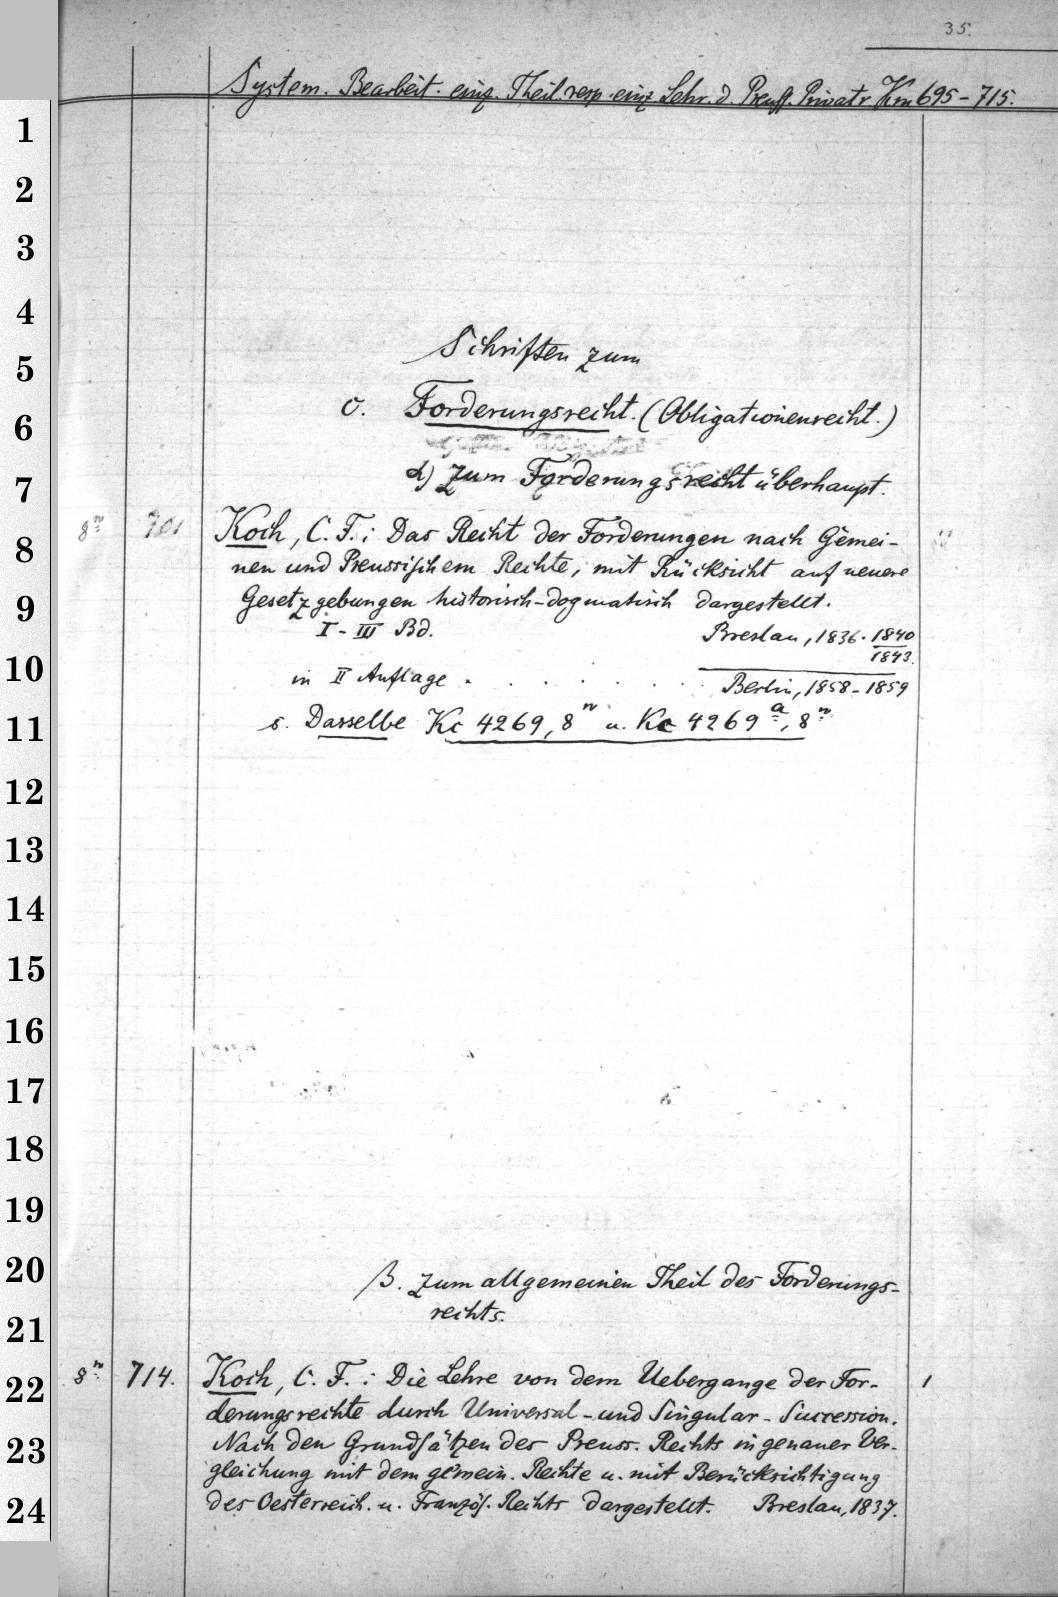 35.
System. Bearbeit. einz. Theil. resp. einz. Lehr. d. Preuss. Privatr. Km 695 - 715.
1
2
3
4
Schriften zum
5
6 c. Forderungsrecht. (Obligationenrecht.)
7 α) Zum Forderungsrecht überhaupt.
8n 701 Koch, C. F.: Das Recht der Forderungen nach Gemei-
8 nen und Preussischem Rechte, mit Rücksicht auf neuere
9 Gesetzgebungen historisch-dogmatisch dargestellt.
I - III Bd. Breslau, 1836. 1840
1843.
10 in II Auflage . . . . . . . Berlin, 1858 - 1859
11 s. Dasselbe Kc 4269, 8n u. Kc 4269a, 8n
12
13
14
15
16
17
18
19
20 β. Zum allgemeinen Theil des Forderungs-
21 rechts.
22 8n 714. Koch, C. F.: Die Lehre von dem Uebergange der For- 1
derungsrechte durch Universal- und Singular-Succession.
23 Nach den Grundsätzen des Preuss. Rechts in genauer Ver-
gleichung mit dem gemein. Rechte u. mit Berücksichtigung
24 des Oesterreich. u. Französ. Rechts dargestellt. Breslau, 1837.